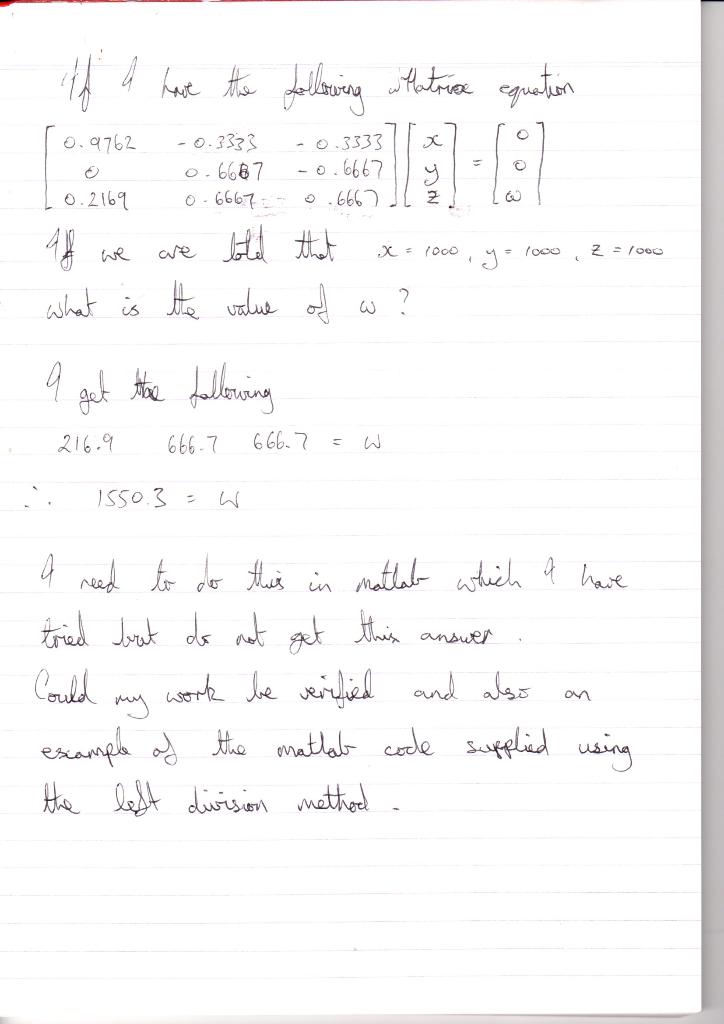 If I have the following Matrix equation
[0.9762 -0.3333 -0.3333] [x] [0]
[0 0.6667 -0.6667] [y] = [0]
[0.2169 0.6667 0.6667] [z] [w]
If we are told that x = 1000, y = 1000, z = 1000
what is the value of w?
I get the following
216.9 666.7 666.7 = W
∴ 1550.3 = W
I need to do this in matlab which I have
tried but do not get this answer.
Could my work be verified and also an
example of the matlab code supplied using
the left division method.